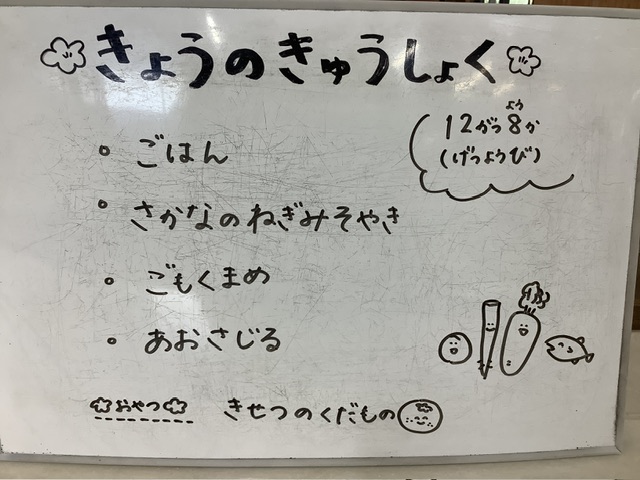 きょうのきゅうしょく
12がつ8か
よう
(げつようび)
ごはん
さかなのねぎみそやき
ごもくまめ
あおさじる
おやつ きせつのくだもの